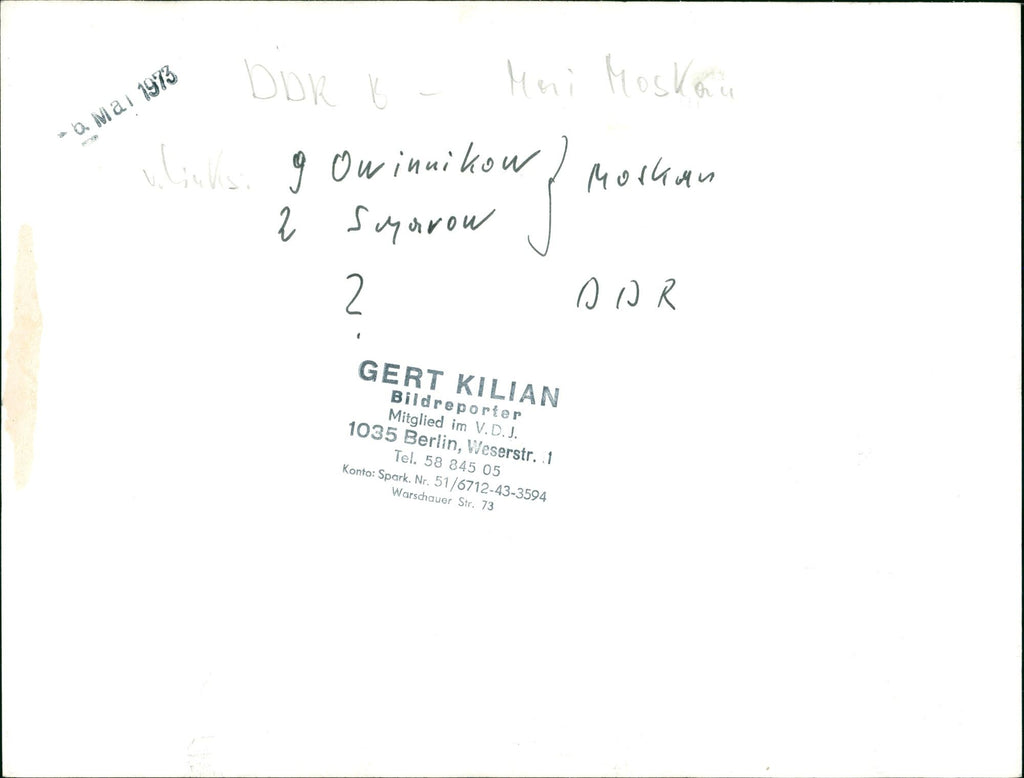 - 6. Mai 1973
DDR B - Mai Moskau
v. links:
9 Owinnikow } Moskau
2 Smarow
? DDR
GERT KILIAN
Bildreporter
Mitglied im V.D.J.
1035 Berlin, Weserstr. 1
Tel. 58 845 05
Konto: Spark. Nr. 51/6712-43-3594
Warschauer Str. 73